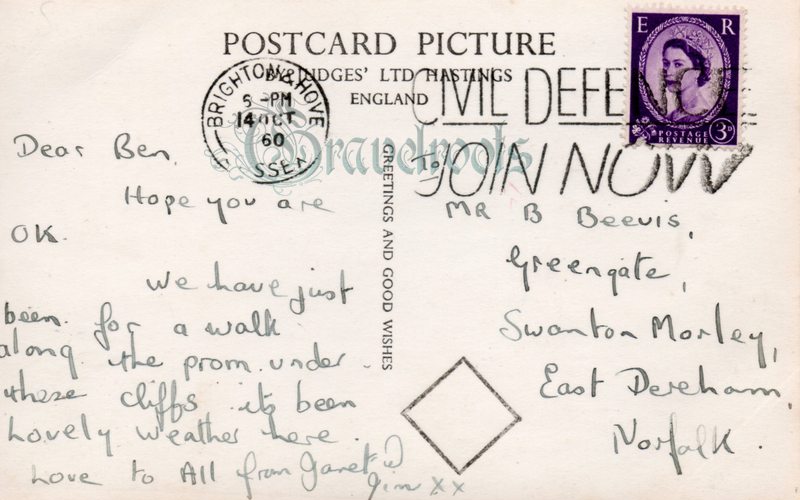 POSTCARD PICTURE
BY JUDGES' LTD HASTINGS
ENGLAND
BRIGHTON & HOVE
6 - PM
14 OCT
60
SSEX
CIVIL DEFENCE
JOIN NOW
E R
POSTAGE
REVENUE
3D
Gravelroots
GREETINGS AND GOOD WISHES
Dear Ben,
Hope you are
OK.
We have just
been for a walk
along the prom under
these cliffs its been
lovely weather here.
Love to All from Janet &
Jim xx
MR B Beevis,
Greengate,
Swanton Morley,
East Dereham,
Norfolk.